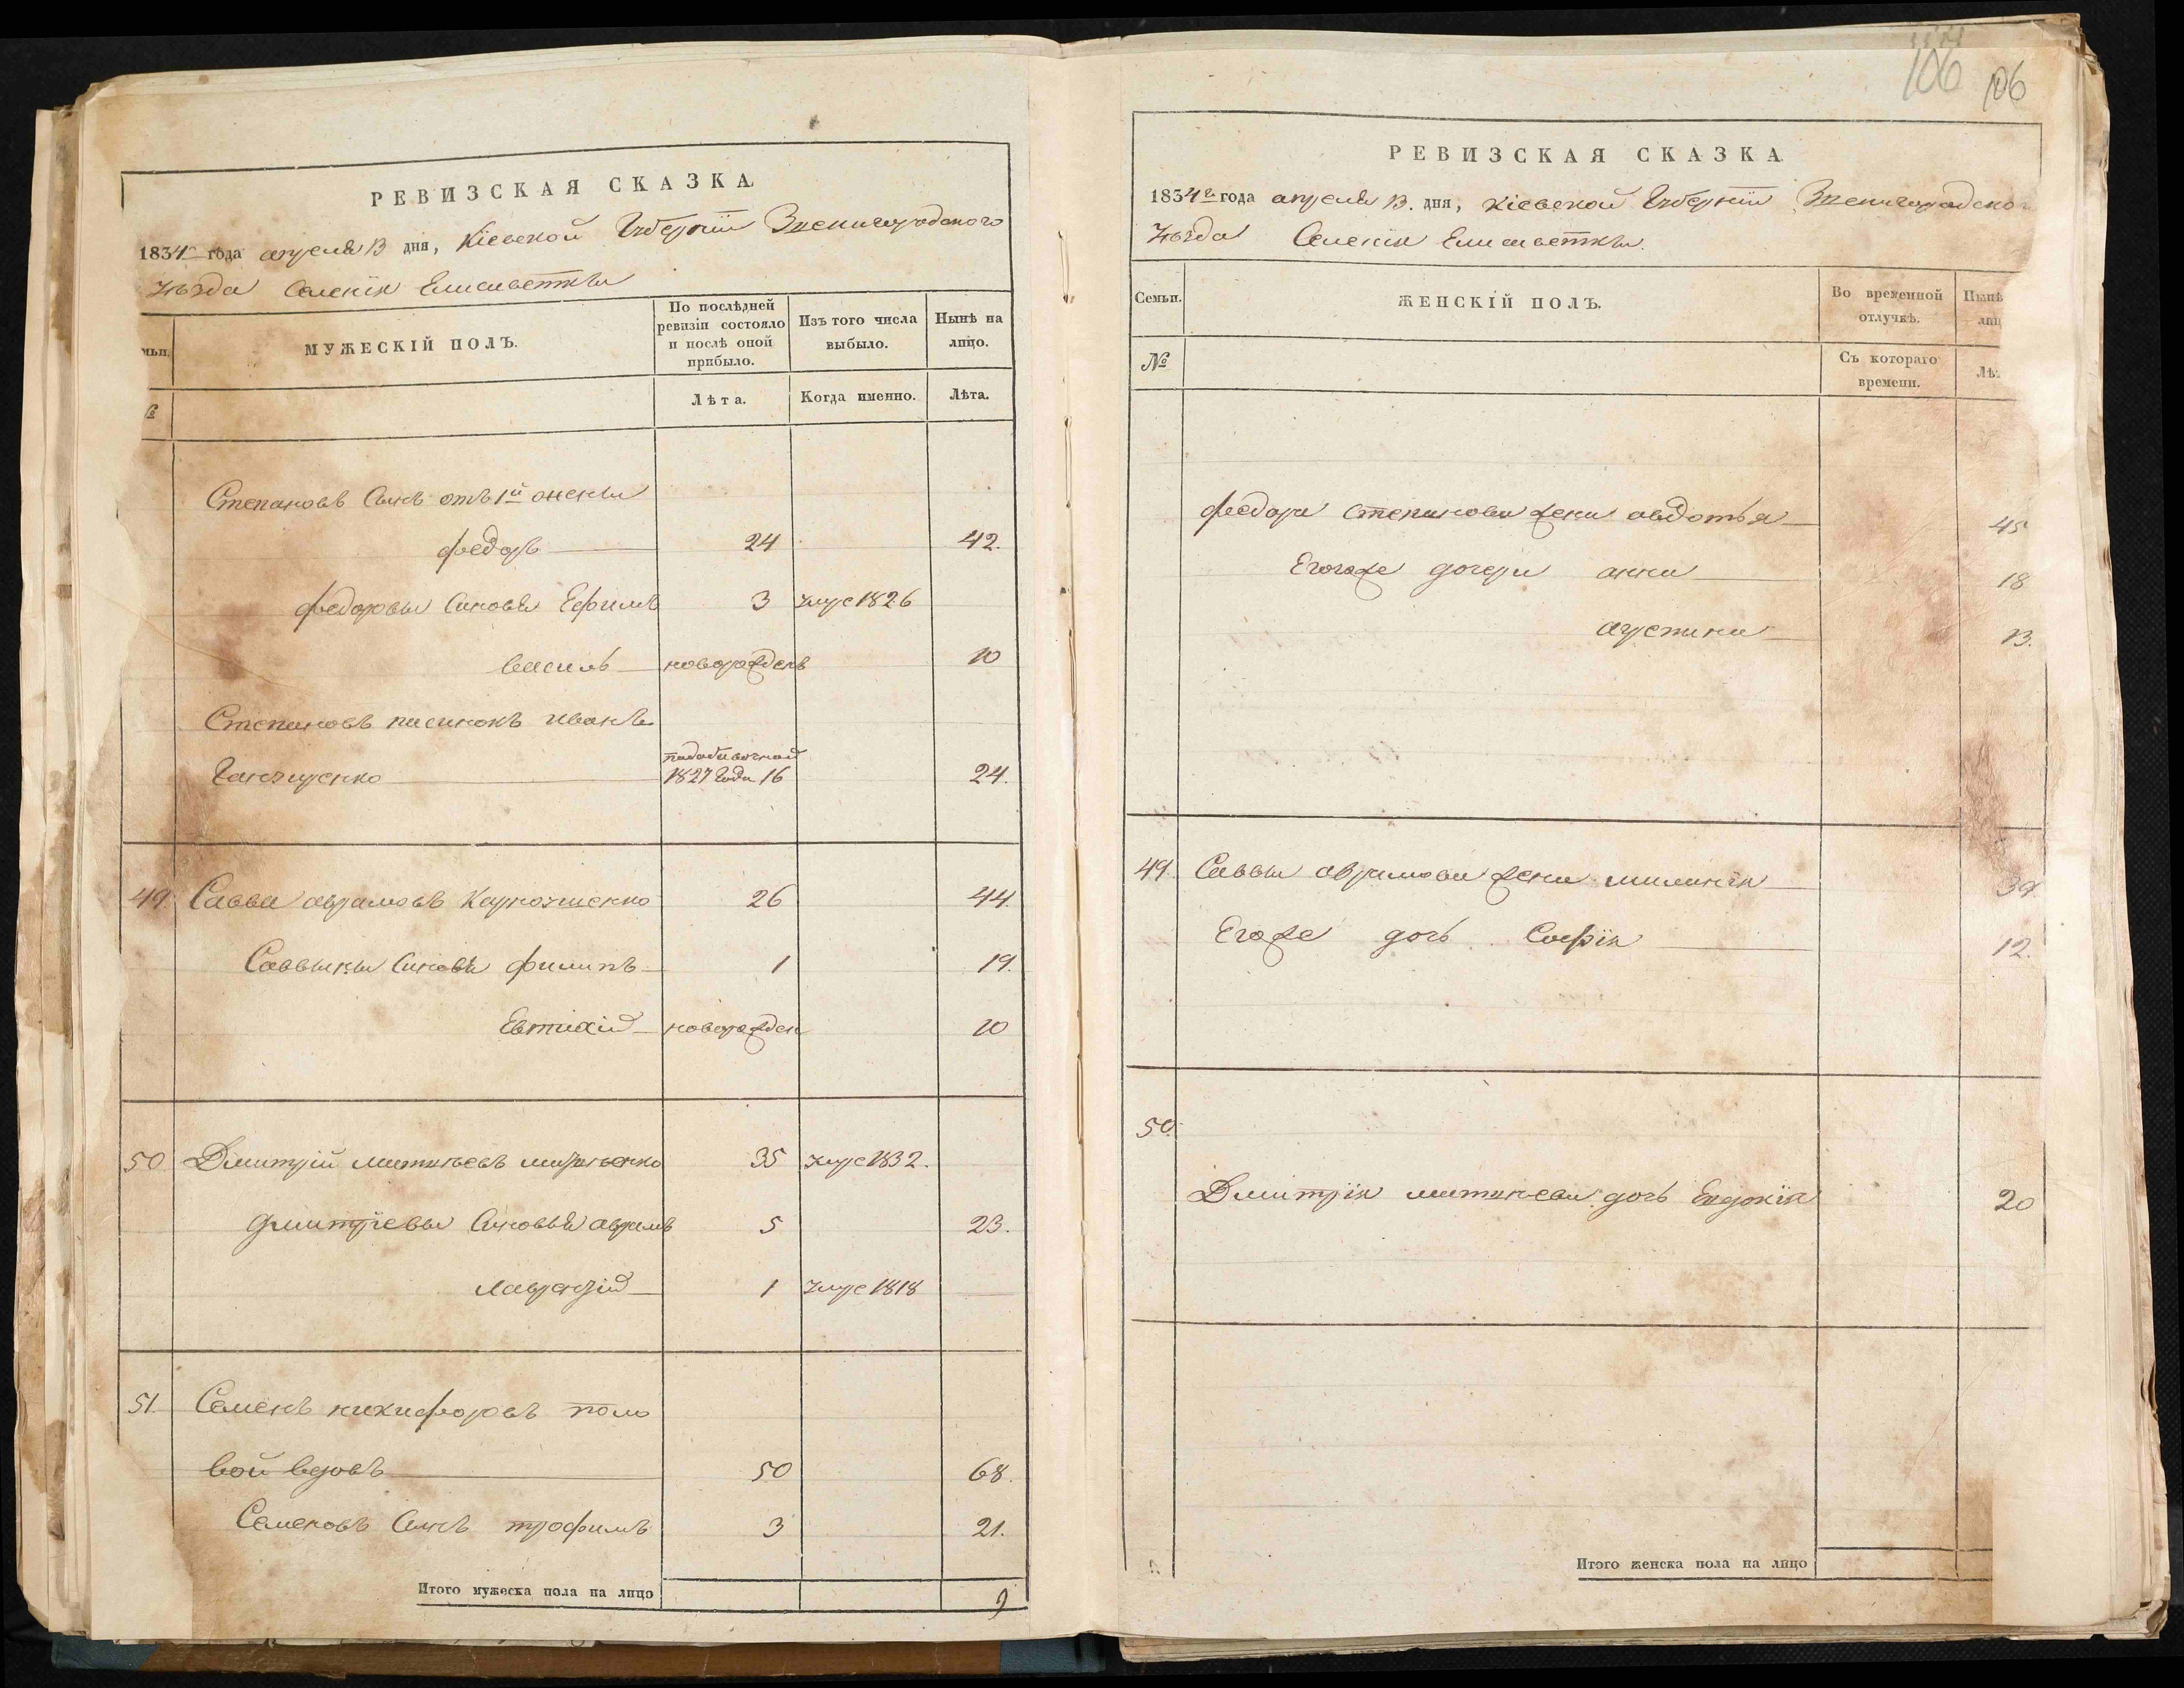 РЕВИЗСКАЯ СКАЗКА
1834го года апреля 13 дня, Кіевской Губерніи Звенигородского
Уѣзда Селенія Елисаветки
МУЖЕСКІЙ ПОЛЪ.
По послѣдней ревизіи состояло и послѣ оной прибыло.
Изъ того числа выбыло.
Нынѣ на лицо.
Лѣта.
Когда именно.
Лѣта.
Степановъ Сынъ отъ 1й жены
федоръ 24 42.
федоровы Сыновья Ефимъ 3 умре 1826
василь новорожденъ 10
Степановъ пасинокъ иванъ
1827 Года 16 24.
49. Савва аврамовъ 26 44.
Саввины Сыновья филипъ 1 19.
Евтихій новорожден 10
50 Дмитрій 35 умре 1832.
дмитріевы Сыновья аврамъ 5 23.
лаврентій 1 умре 1818
51. Семенъ никифоровъ поло
вой вдовъ 50 68.
Семеновъ Сынъ трофимъ 3 21.
Итого мужеска пола на лицо 9
106 106
РЕВИЗСКАЯ СКАЗКА
1834го года апреля 13. дня, Кіевской Губерніи Звенигородско
Уѣзда Селенія Елисаветки.
Семьи.
ЖЕНСКІЙ ПОЛЪ.
Во временной отлучкѣ.
Нынѣ
лиц
№
Съ котораго времени.
Лѣ
федора степанова жена авдотья 45
Егоже дочери анна 18
13.
49. Саввы аврамова жена миланія 39.
Егоже дочь Софія 12.
50.
Дмитрія дочь Евдокія 20
Итого женска пола на лицо